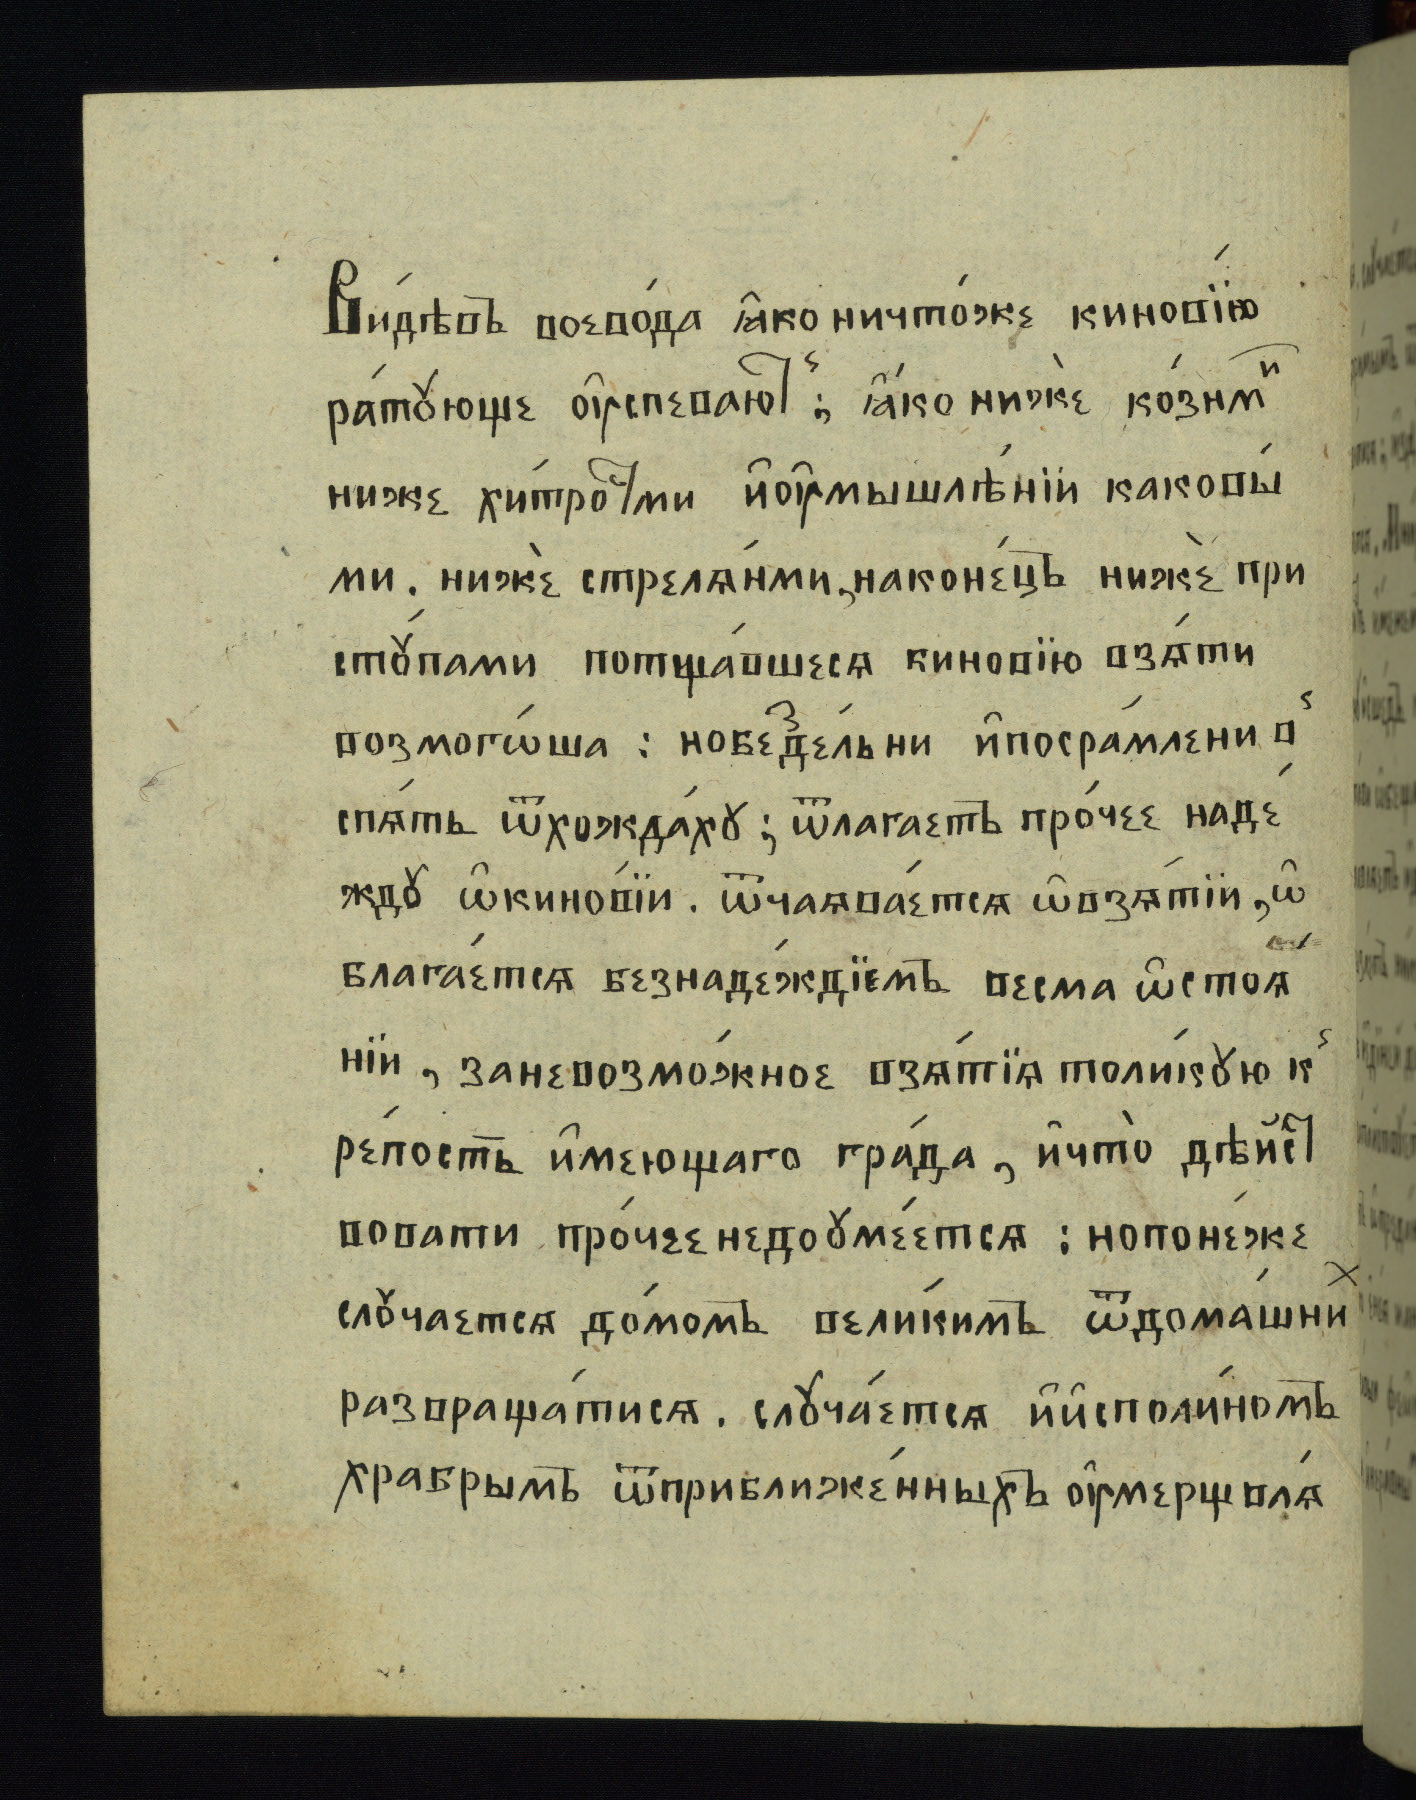 Ви́дѣвъ воево́да ꙗ҆́ко ничто́же кинові́ю
ра́тꙋюще ᲂу҆спеваю́тⷭ҇; ꙗ҆́ко нижѐ ко́знмⷩ
ниже хи́троⷭ҇тми и҆ᲂу҆мышлѣ́нїи каковы́
ми. нижѐ стрелѧ́нми, наконе́цъ нижѐ при
стꙋ́пами потща́вшесѧ кинові́ю взѧ́ти
возмого́ша: нобеⷥ҇де́льни и҆посра́млени в
спѧ́ть ѿхожда́хꙋ; ѿлагаетъ про́чее наде́
ждꙋ ѡ҆кинові́и. ѿчаѧва́етсѧ ѡ҆взѧ́тїи, ѡ҆
блага́етсѧ безнаде́ждїемъ весма ѡ҆стоѧ́
нїи, заневозмо́жное взѧ́тїѧ толи́кꙋю к
ре́пость и҆меющаго гра́да, и҆что̀ дѣйсⷮ
вовати про́чее недоꙋме́етсѧ: нопоне́же
слꙋ́чаетсѧ до́момъ вели́кимъ ѿдома́шниⷯ
развраща́тисѧ. слꙋча́етсѧ и҆и҆споли́номъ
храбрымъ ѿприближе́нныхъ ᲂу҆мерщвлѧ́